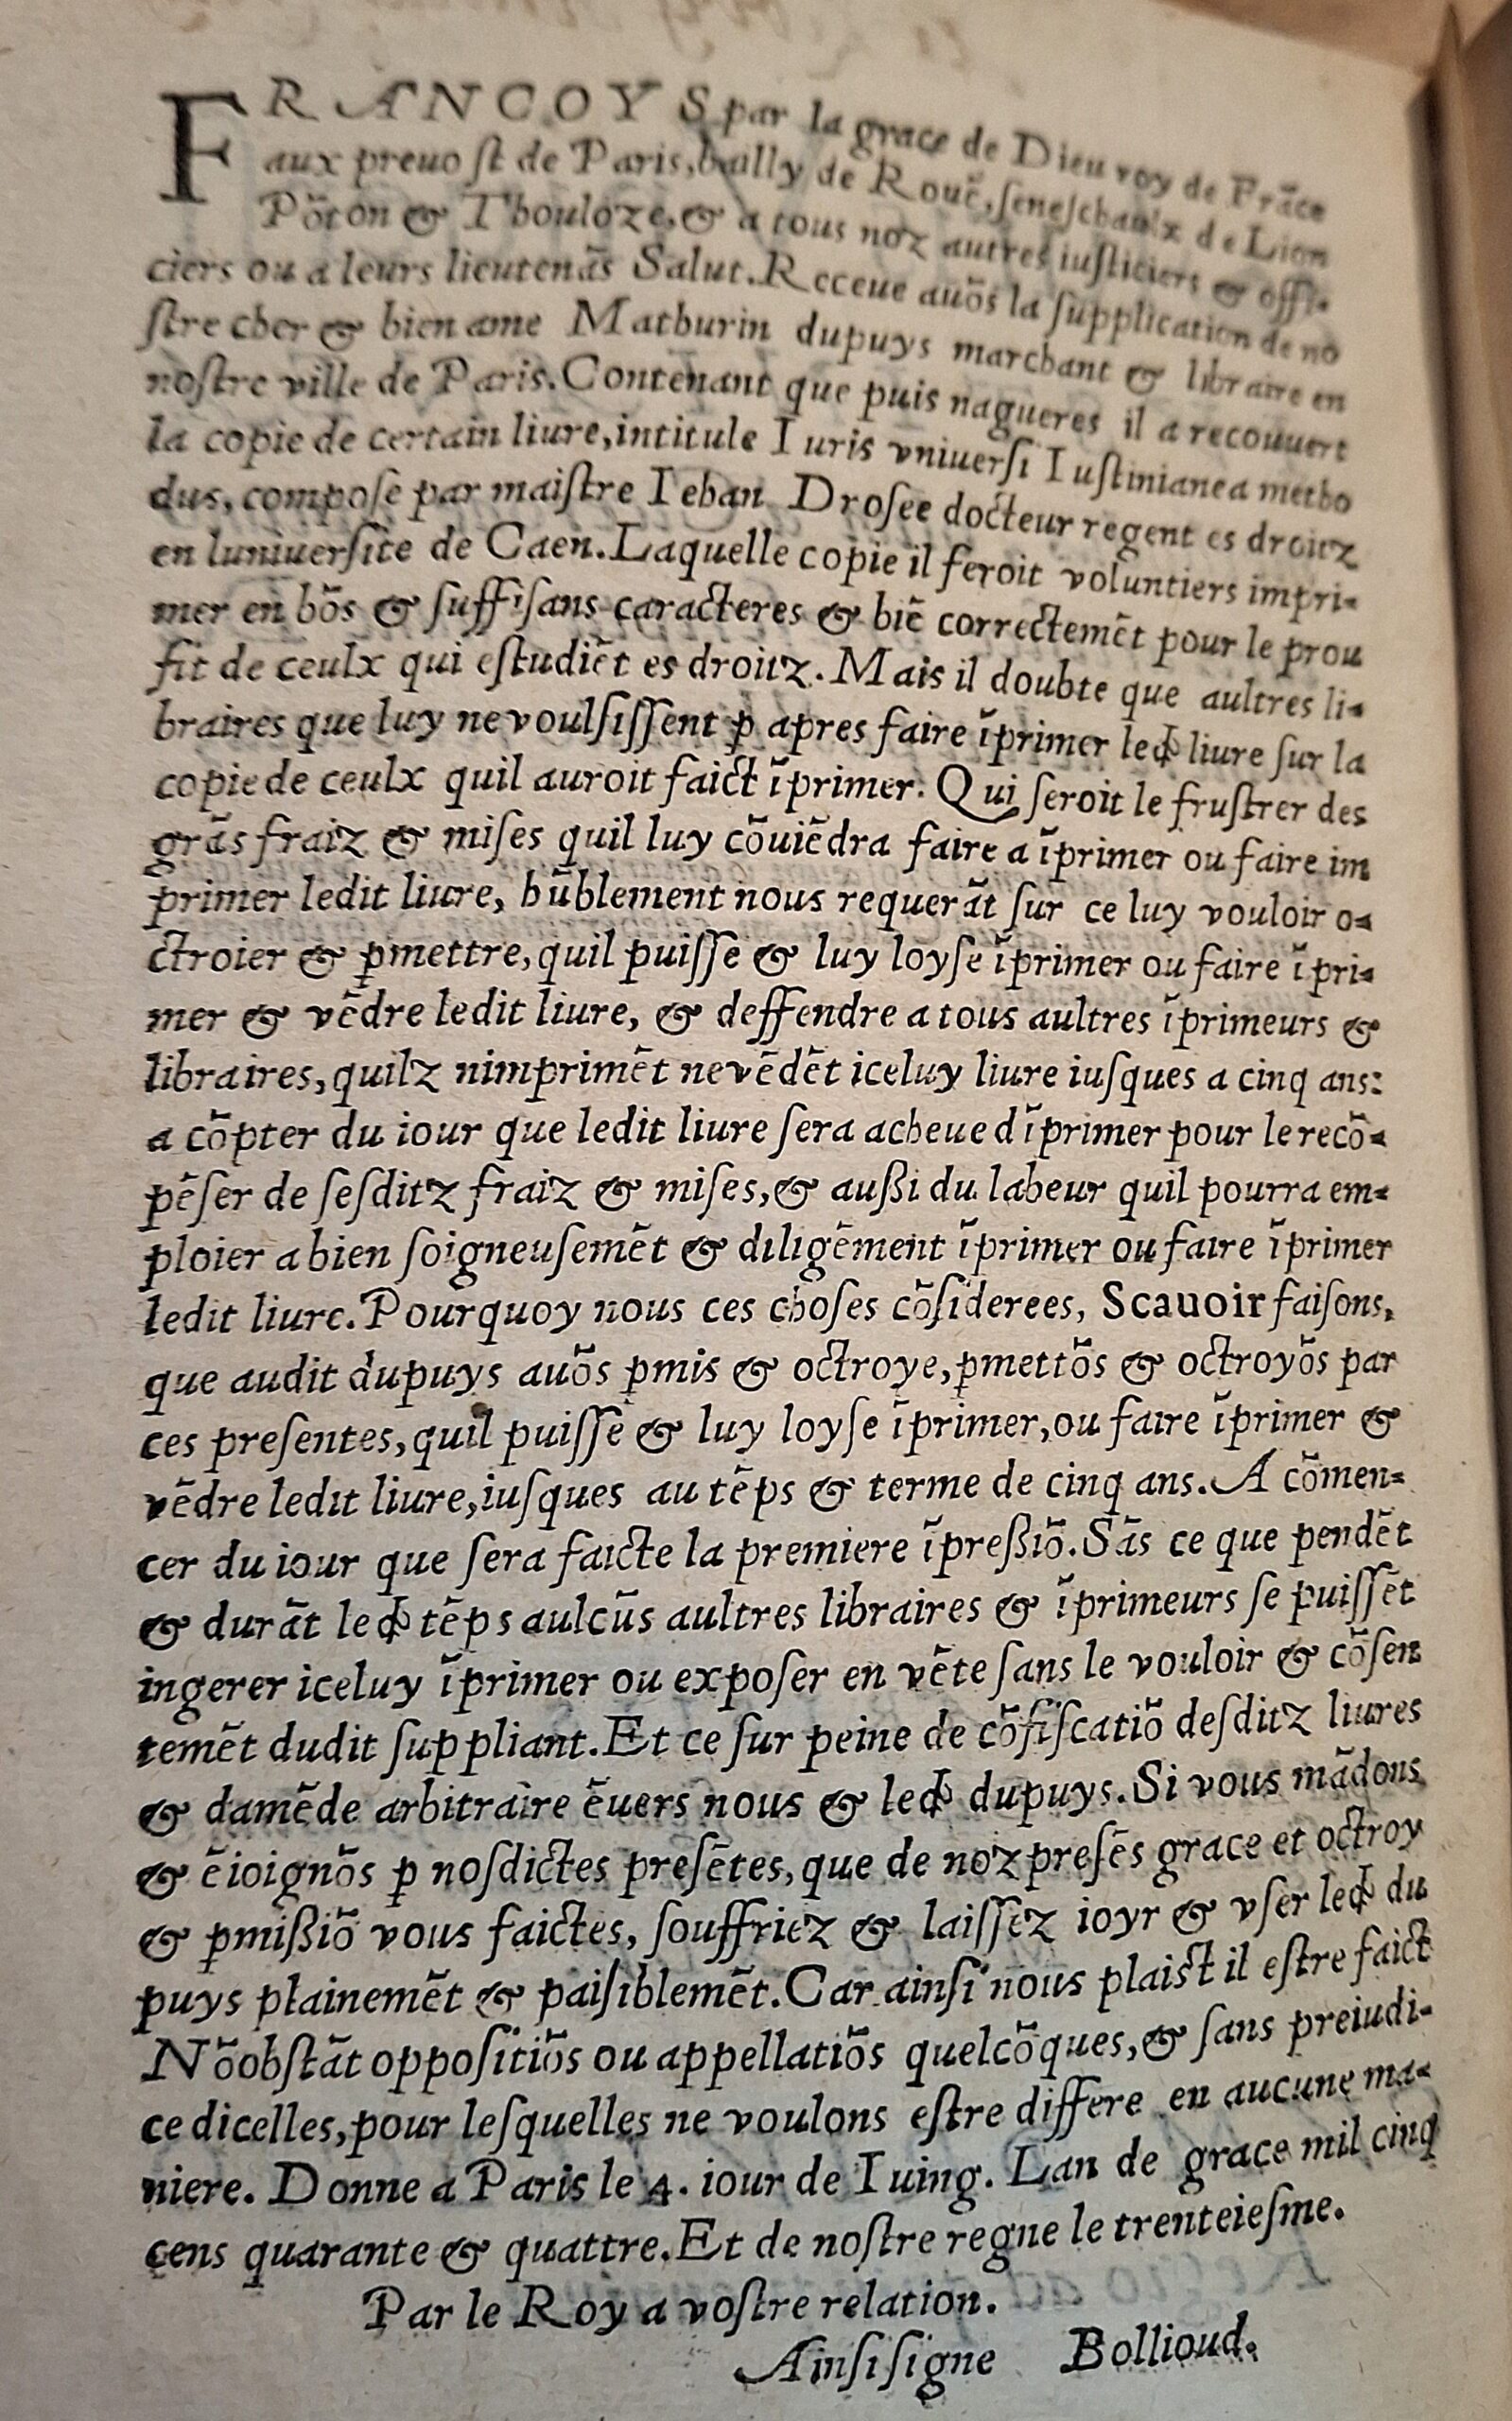 FRANCOYS par la grace de Dieu roy de Frãce
aux preuost de Paris, bailly de Rouẽ, seneschaulx de Lion
Põton & Thouloze, & a tous noz autres iusticiers & offi-
ciers ou a leurs lieutenãs Salut. Receue auõs la supplication de no
stre cher & bien ame Mathurin dupuys marchant & libraire en
nostre ville de Paris. Contenant que puis nagueres il a recouuert
la copie de certain liure, intitule Iuris vniuersi Iustinianea metho
dus, compose par maistre Iehan Drosee docteur regent es droitz
en luniuersite de Caen. Laquelle copie il feroit voluntiers impri-
mer en bõs & suffisans caracteres & biẽ correctemẽt pour le prou
fit de ceulx qui estudiẽt es droitz. Mais il doubte que aultres li-
braires que luy ne voulsissent ꝑ apres faire ĩprimer led́ liure sur la
copie de ceulx quil auroit faict ĩprimer. Qui seroit le frustrer des
grãs fraiz & mises quil luy cõuiẽdra faire a ĩprimer ou faire im
primer ledit liure, hũblement nous requerãt sur ce luy vouloir o-
ctroier & ꝑmettre, quil puisse & luy loyse ĩprimer ou faire ĩpri-
mer & vẽdre ledit liure, & deffendre a tous aultres ĩprimeurs &
libraires, quilz nimprimẽt ne vẽdẽt iceluy liure iusques a cinq ans:
a cõpter du iour que ledit liure sera acheue dĩprimer pour le recõ-
pẽser de sesditz fraiz & mises, & außi du labeur quil pourra em-
ploier a bien soigneusemẽt & diligẽment ĩprimer ou faire ĩprimer
ledit liure. Pourquoy nous ces choses cõsiderees, Scauoir faisons,
que audit dupuys auõs ꝑmis & octroye, ꝑmettõs & octroyõs par
ces presentes, quil puisse & luy loyse ĩprimer, ou faire ĩprimer &
vẽdre ledit liure, iusques au tẽps & terme de cinq ans. A cõmen-
cer du iour que sera faicte la premiere ĩpreßiõ. Sãs ce que pendẽt
& durãt led́ tẽps aulcũs aultres libraires & ĩprimeurs se puissẽt
ingerer iceluy ĩprimer ou exposer en vẽte sans le vouloir & cõsen
temẽt dudit suppliant. Et ce sur peine de cõfiscatiõ desditz liures
& damẽde arbitraire ẽuers nous & led́ dupuys. Si vous mãdons
& ẽioignõs ꝑ nosdictes presẽtes, que de noz presẽs grace et octroy
& ꝑmißiõ vous faictes, souffriez & laissez ioyr & vser led́ du
puys plainemẽt & paisiblemẽt. Car ainsi nous plaist il estre faict
Nõobstãt oppositiõs ou appellatiõs quelcõques, & sans preiudi-
ce dicelles, pour lesquelles ne voulons estre differe en aucune ma-
niere. Donne a Paris le 4. iour de Iuing. Lan de grace mil cinq
cens quarante & quattre. Et de nostre regne le trenteiesme.
Par le Roy a vostre relation.
Ainsi signe Bollioud.